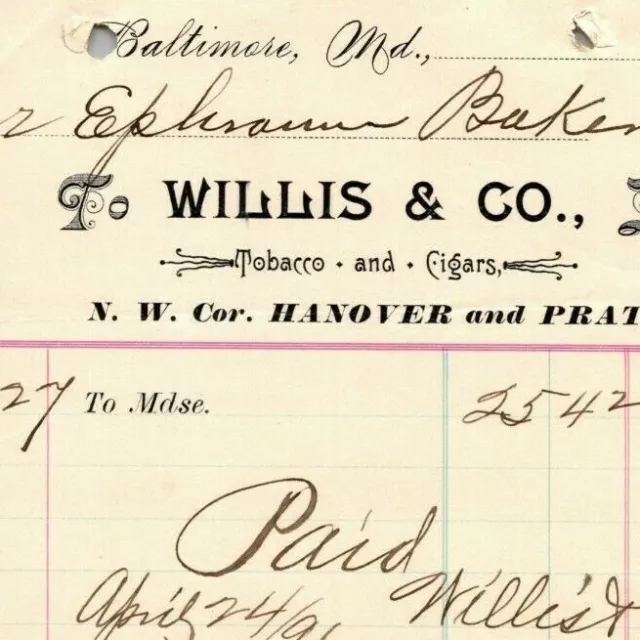 Baltimore, Md.,
r Ephraim Baker
To WILLIS & CO.,
Tobacco and Cigars,
N. W. Cor. HANOVER and PRAT
27 To Mdse. 2542
Paid
April 24/9 Willis &